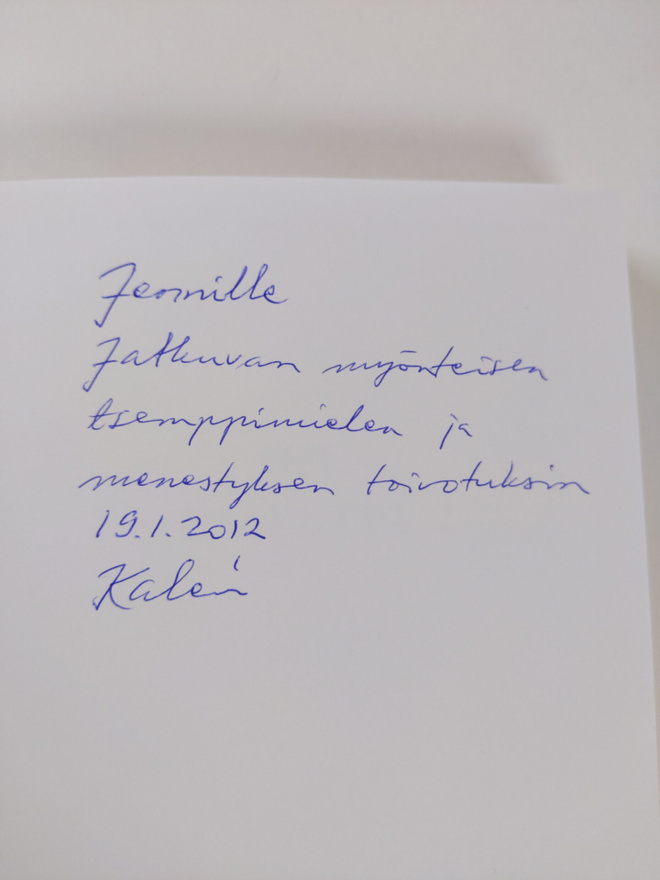 Jennille
Jatkuvan myönteisen
tsemppimielen ja
menestyksen toivotuksin
19.1.2012